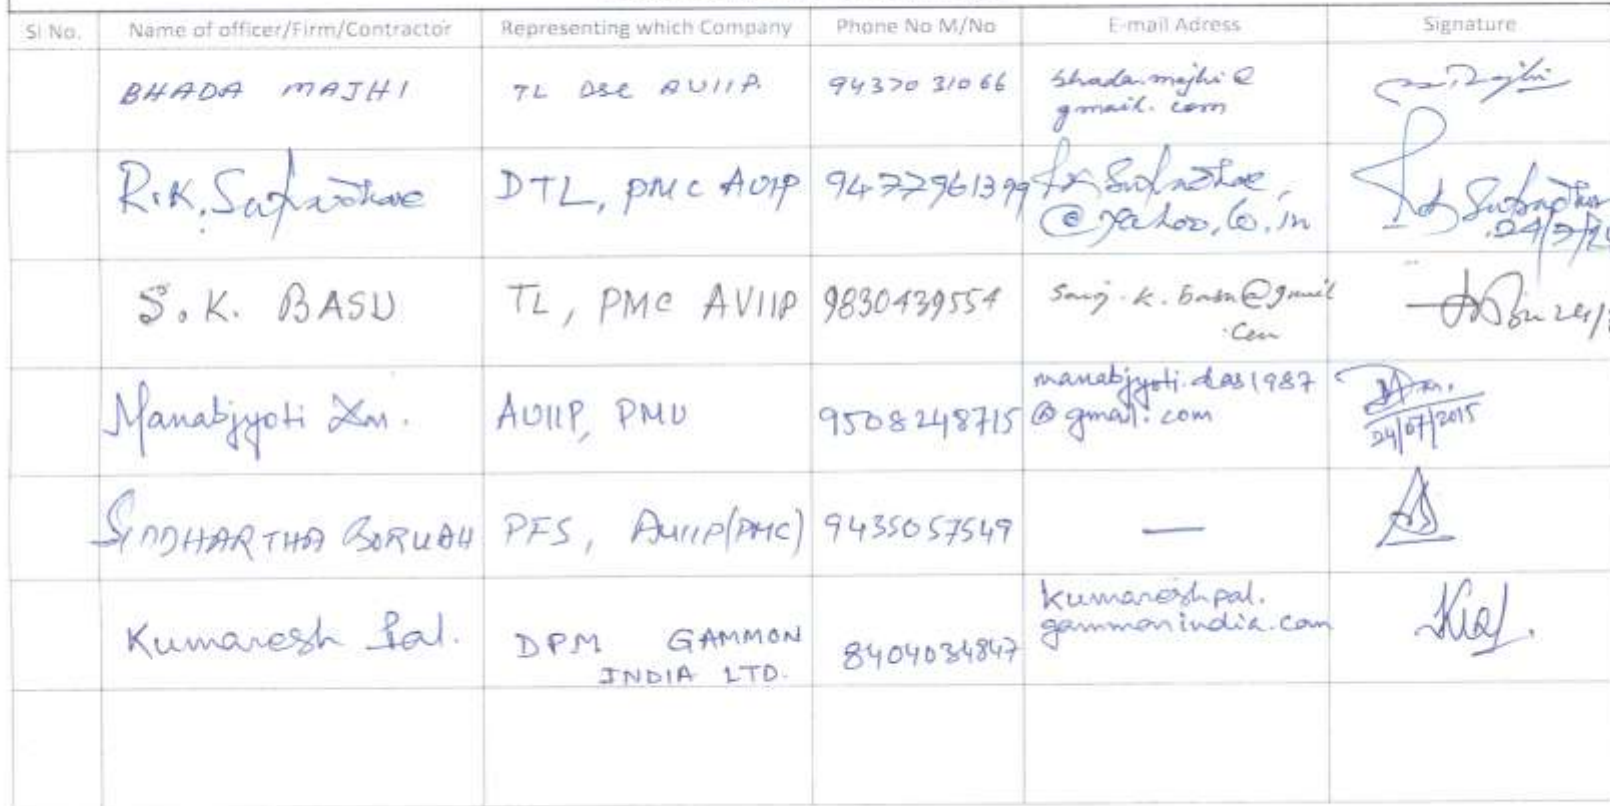 Sl No. Name of officer/Firm/Contractor Representing which Company Phone No M/No E-mail Adress Signature
BHADA MAJHI TL DSC AUIIP. 9437031066 bhada.majhi@
gmail.com
R.K. Sutradhar DTL, PMC AUIIP 9477961399
@yahoo.co.in
24/7/
S.K. BASU TL, PMC AVIIP 9830439554 k.basu@gmail
.com
Manabjyoti Das. AUIIP, PMU 9508248715 manabjyoti.das1987
@gmail.com
24/07/2015
SIDDHARTHA BORUAH PFS, AUIIP(PMC) 9435057549 —
Kumaresh Pal. DPM GAMMON
INDIA LTD. 8404034847 kumareshpal.
gammonindia.com
KPal.